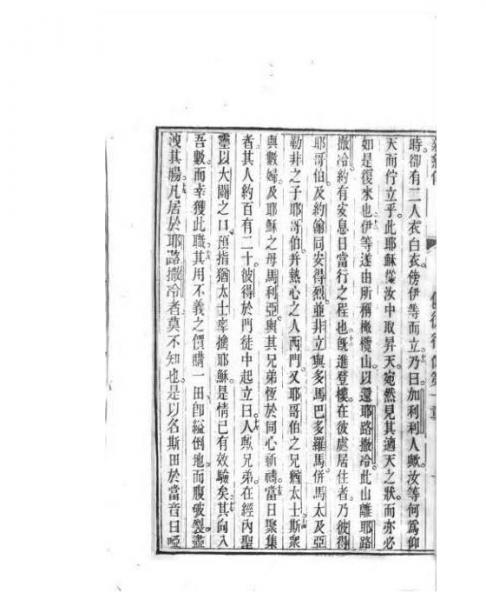 時卻有二人衣白衣傍伊等而立乃曰加利利人歟汝等何爲仰
天而佇立乎此耶穌從汝中取昇天宛然見其適天之狀而亦必
如是復來也伊等遂由所稱橄欖山以還耶路撒冷此山離耶路
撒冷約有安息日當行之程也旣進登樓在彼處居住者乃彼得
耶哥伯及約翰同安得烈並非立與多馬巴多羅馬併馬太及亞
勒非之子耶哥伯并熱心之人西門又耶哥伯之兄猶太士斯衆
與數婦及耶穌之母馬利亞與其兄弟恆於同心祈禱當日聚集
者其人約百有二十彼得於門徒中起立曰人歟兄弟在經內聖
靈以大闢之口預指猶太士率擒耶穌是情已有效驗矣其向入
吾數而幸獲此職其用不義之價購一田卽縊倒地而腹破裂盡
洩其腸凡居於耶路撒冷者莫不知也是以名斯田於當音曰啞